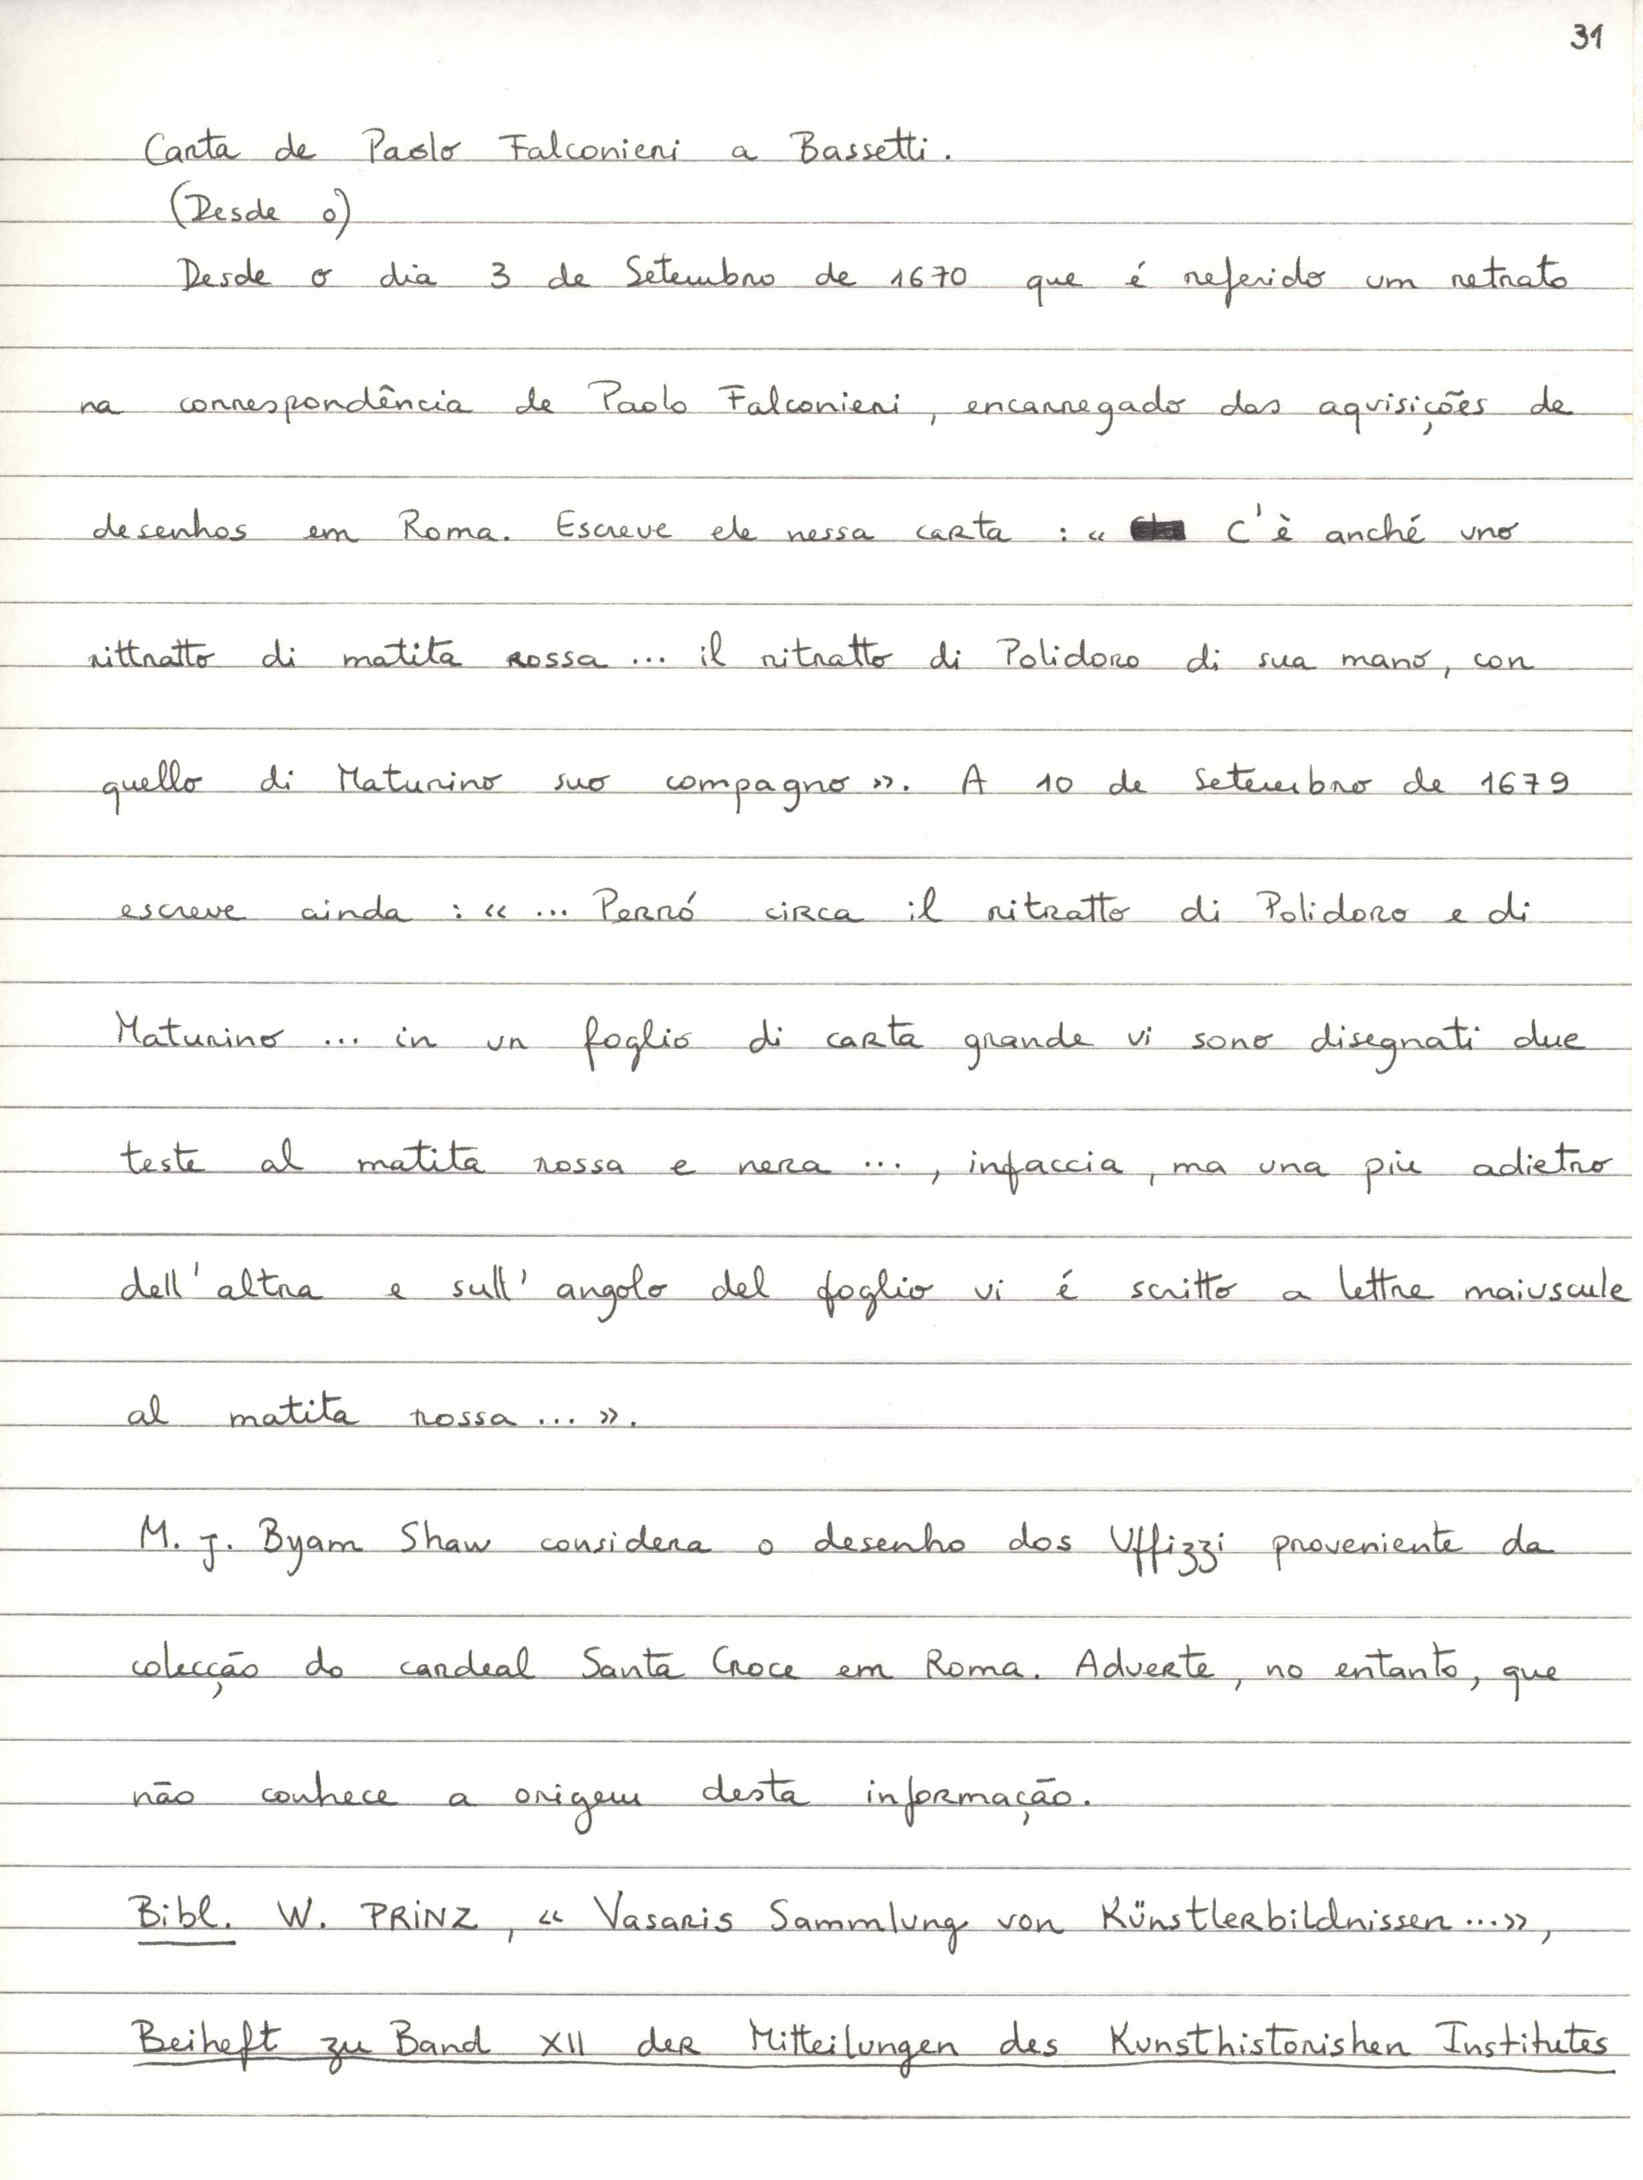 31
Carta de Paolo Falconieri a Bassetti.
(Desde o)
Desde o dia 3 de Setembro de 1670 que é referido um retrato
na correspondência de Paolo Falconieri, encarregado das aqvisições de
desenhos em Roma. Escreve ele nessa carta : « C'è anché uno
rittratto di matita rossa ... il ritratto di Polidoro di sua mano, con
quello di Maturino suo compagno ». A 10 de Setembro de 1679
escreve ainda : « ... Perró circa il ritratto di Polidoro e di
Maturino ... in un foglio di carta grande vi sono disegnati due
teste al matita rossa e nera ..., infaccia, ma una piu adietro
dell'altra e sull'angolo del foglio vi é scritto a lettre maiuscule
al matita rossa ... ».
M. J. Byam Shaw considera o desenho dos Uffizzi proveniente da
colecção do cardeal Santa Croce em Roma. Adverte, no entanto, que
não conhece a origem desta informação.
Bibl. W. PRINZ, « Vasaris Sammlung von Künstlerbildnissen ...»,
Beiheft zu Band XII der Mitteilungen des Kunsthistorishen Institutes